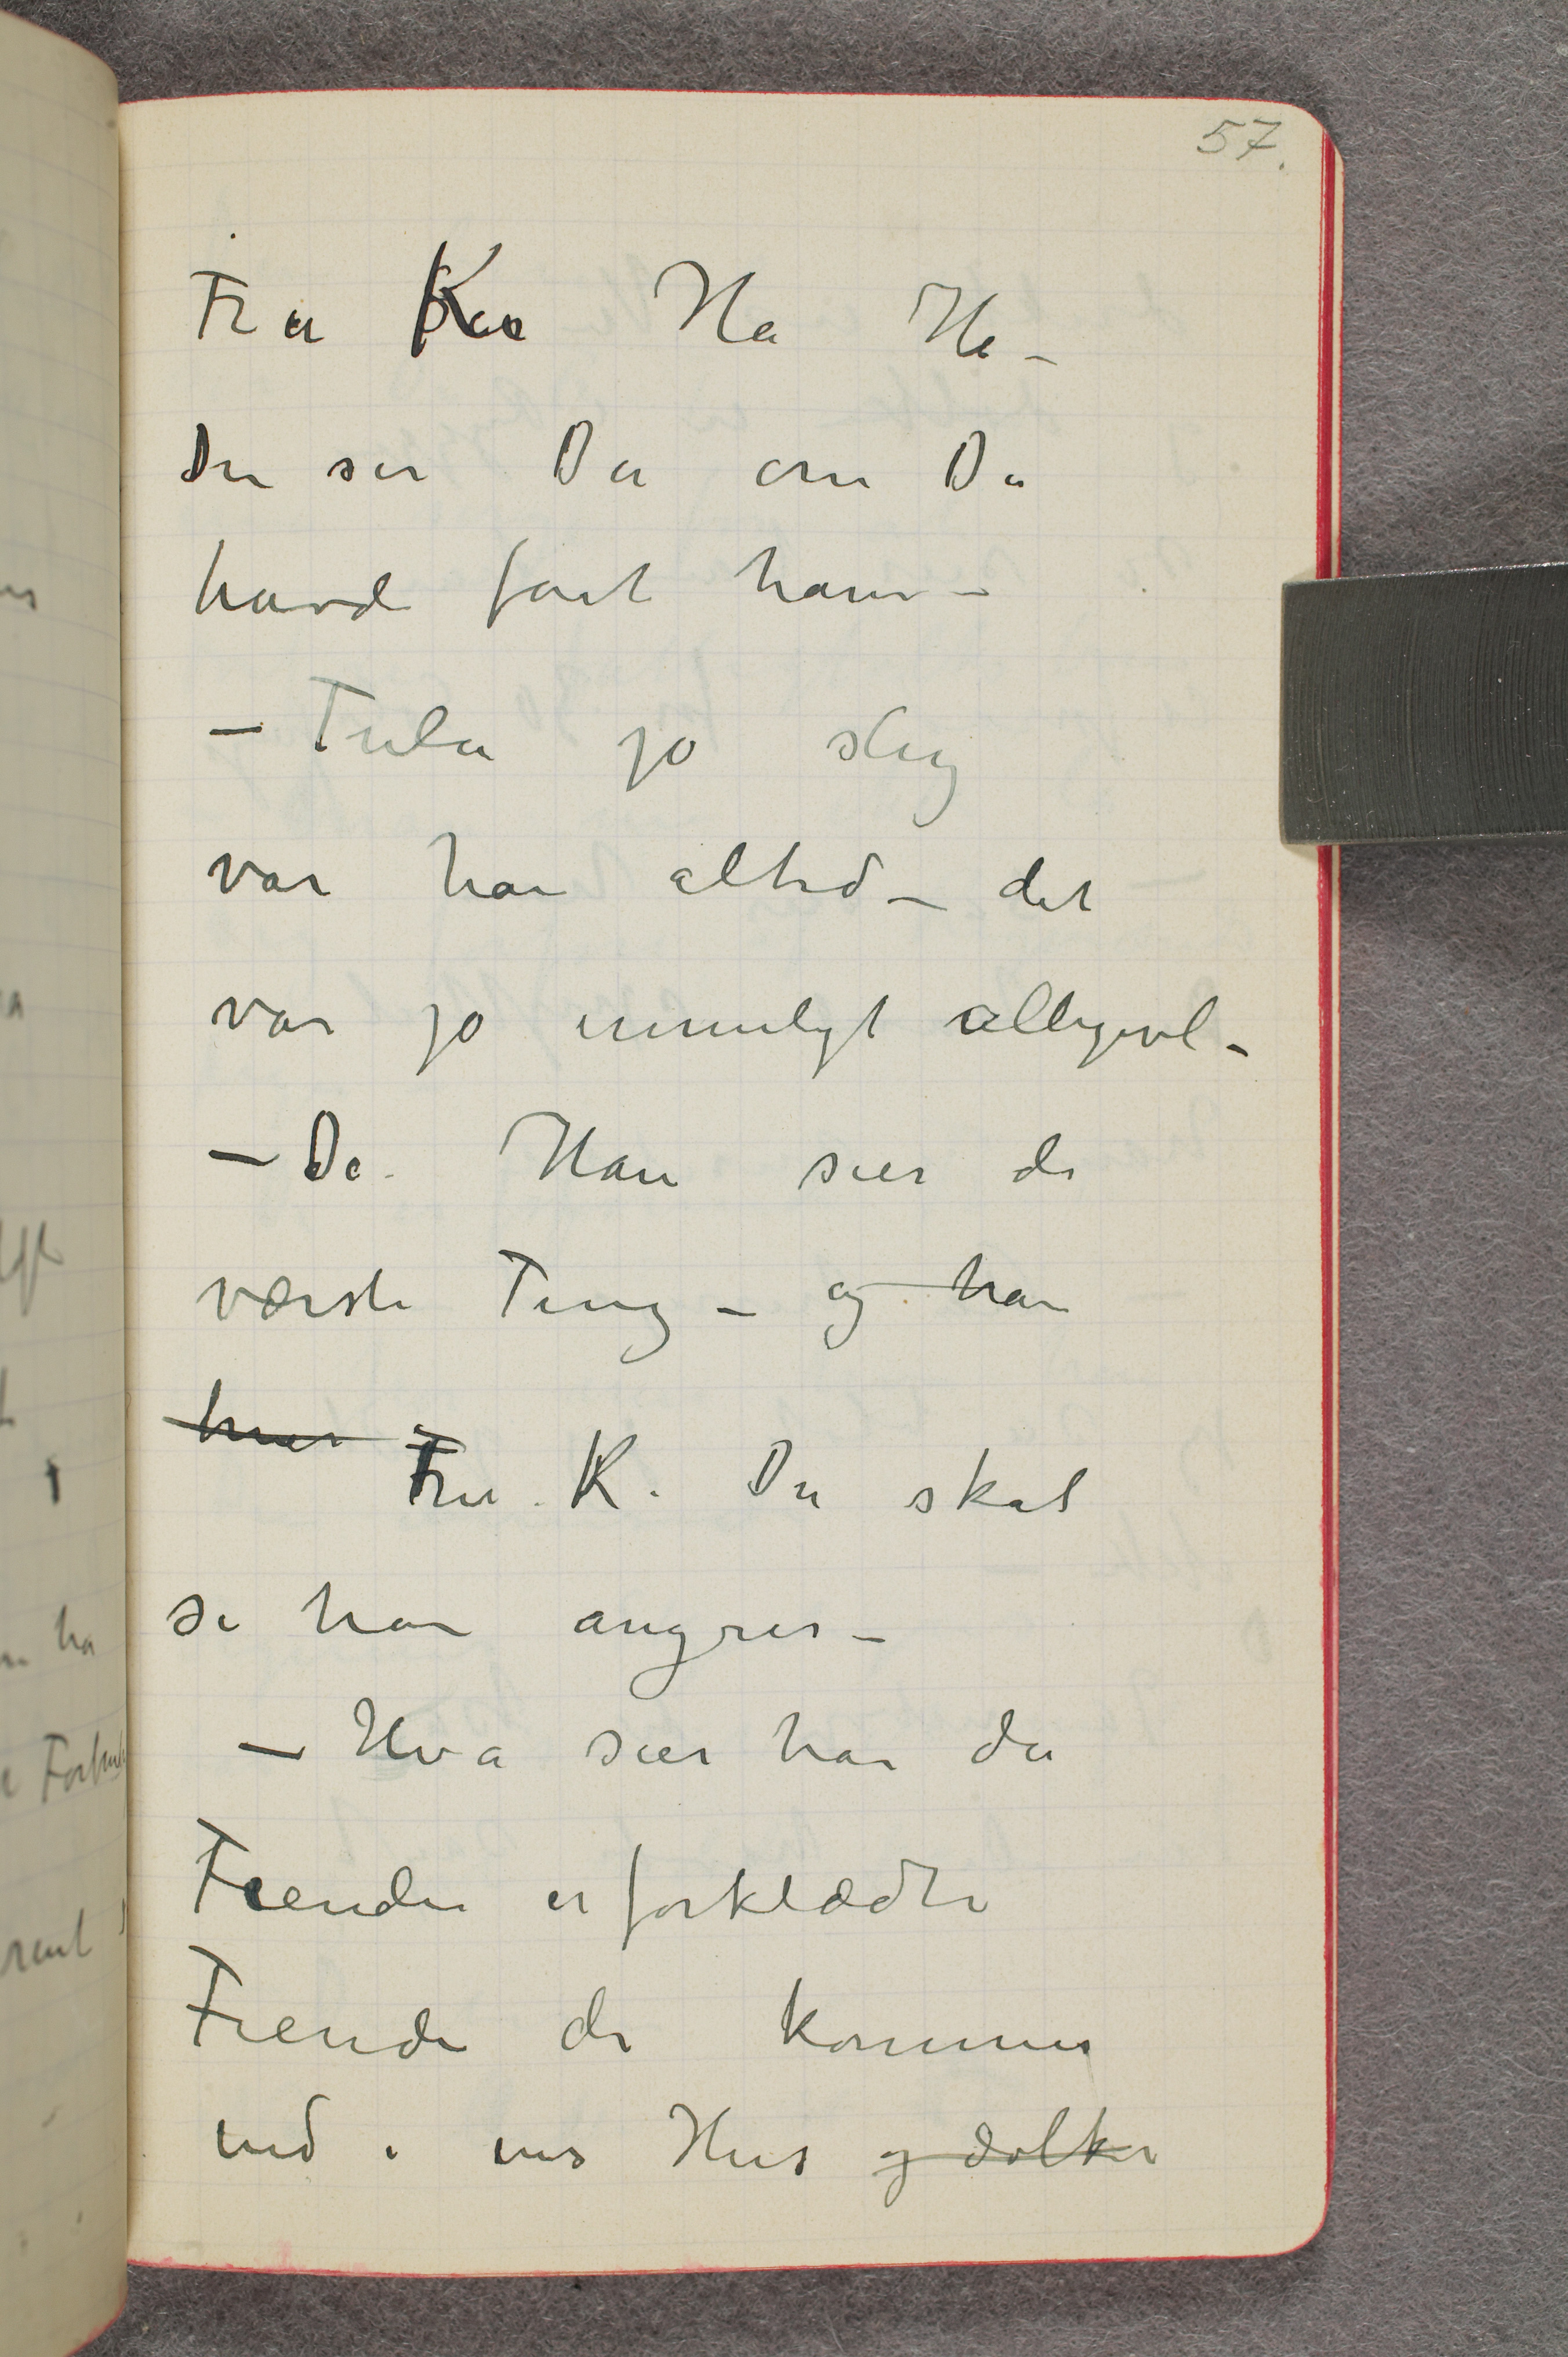 57.
Fru Kar Ha Ha –
Du ser Du om Du
havde faat ham –
– Tulla jo slig
var han altid – det
var jo umuligt alligevel –
– De Han sier de
værste Ting – og han
hvar
Fru K. Du skal
se han angrer –
– Hva sier han da
Fiender er forklædte
Fiender de kommer
ind i ens Hus og dolker